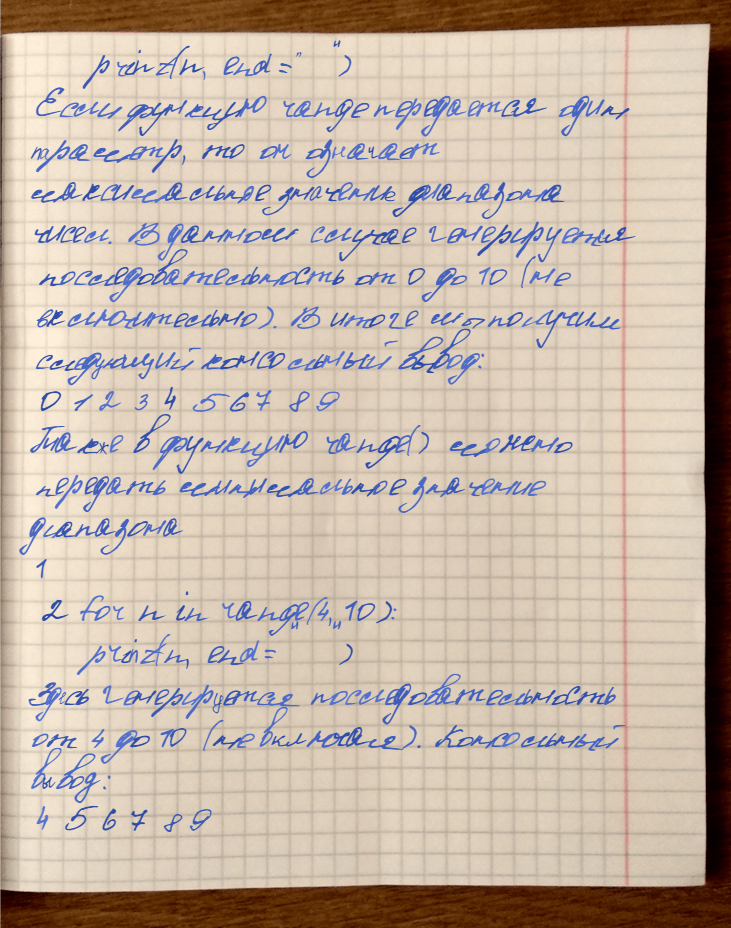 print(n, end=" ")
Если функцию range передается один
параметр, то он означает
максимальное значение диапазона
чисел. В данном случае генерируется
последовательность от 0 до 10 (не
включительно). В итоге мы получим
следующий консольный вывод:
0 1 2 3 4 5 6 7 8 9
Также в функцию range() можно
передать минимальное значение
диапазона
1
2 for n in range(4, 10):
print(n, end=" ")
Здесь генерируется последовательность
от 4 до 10 (не включая). Консольный
вывод:
4 5 6 7 8 9